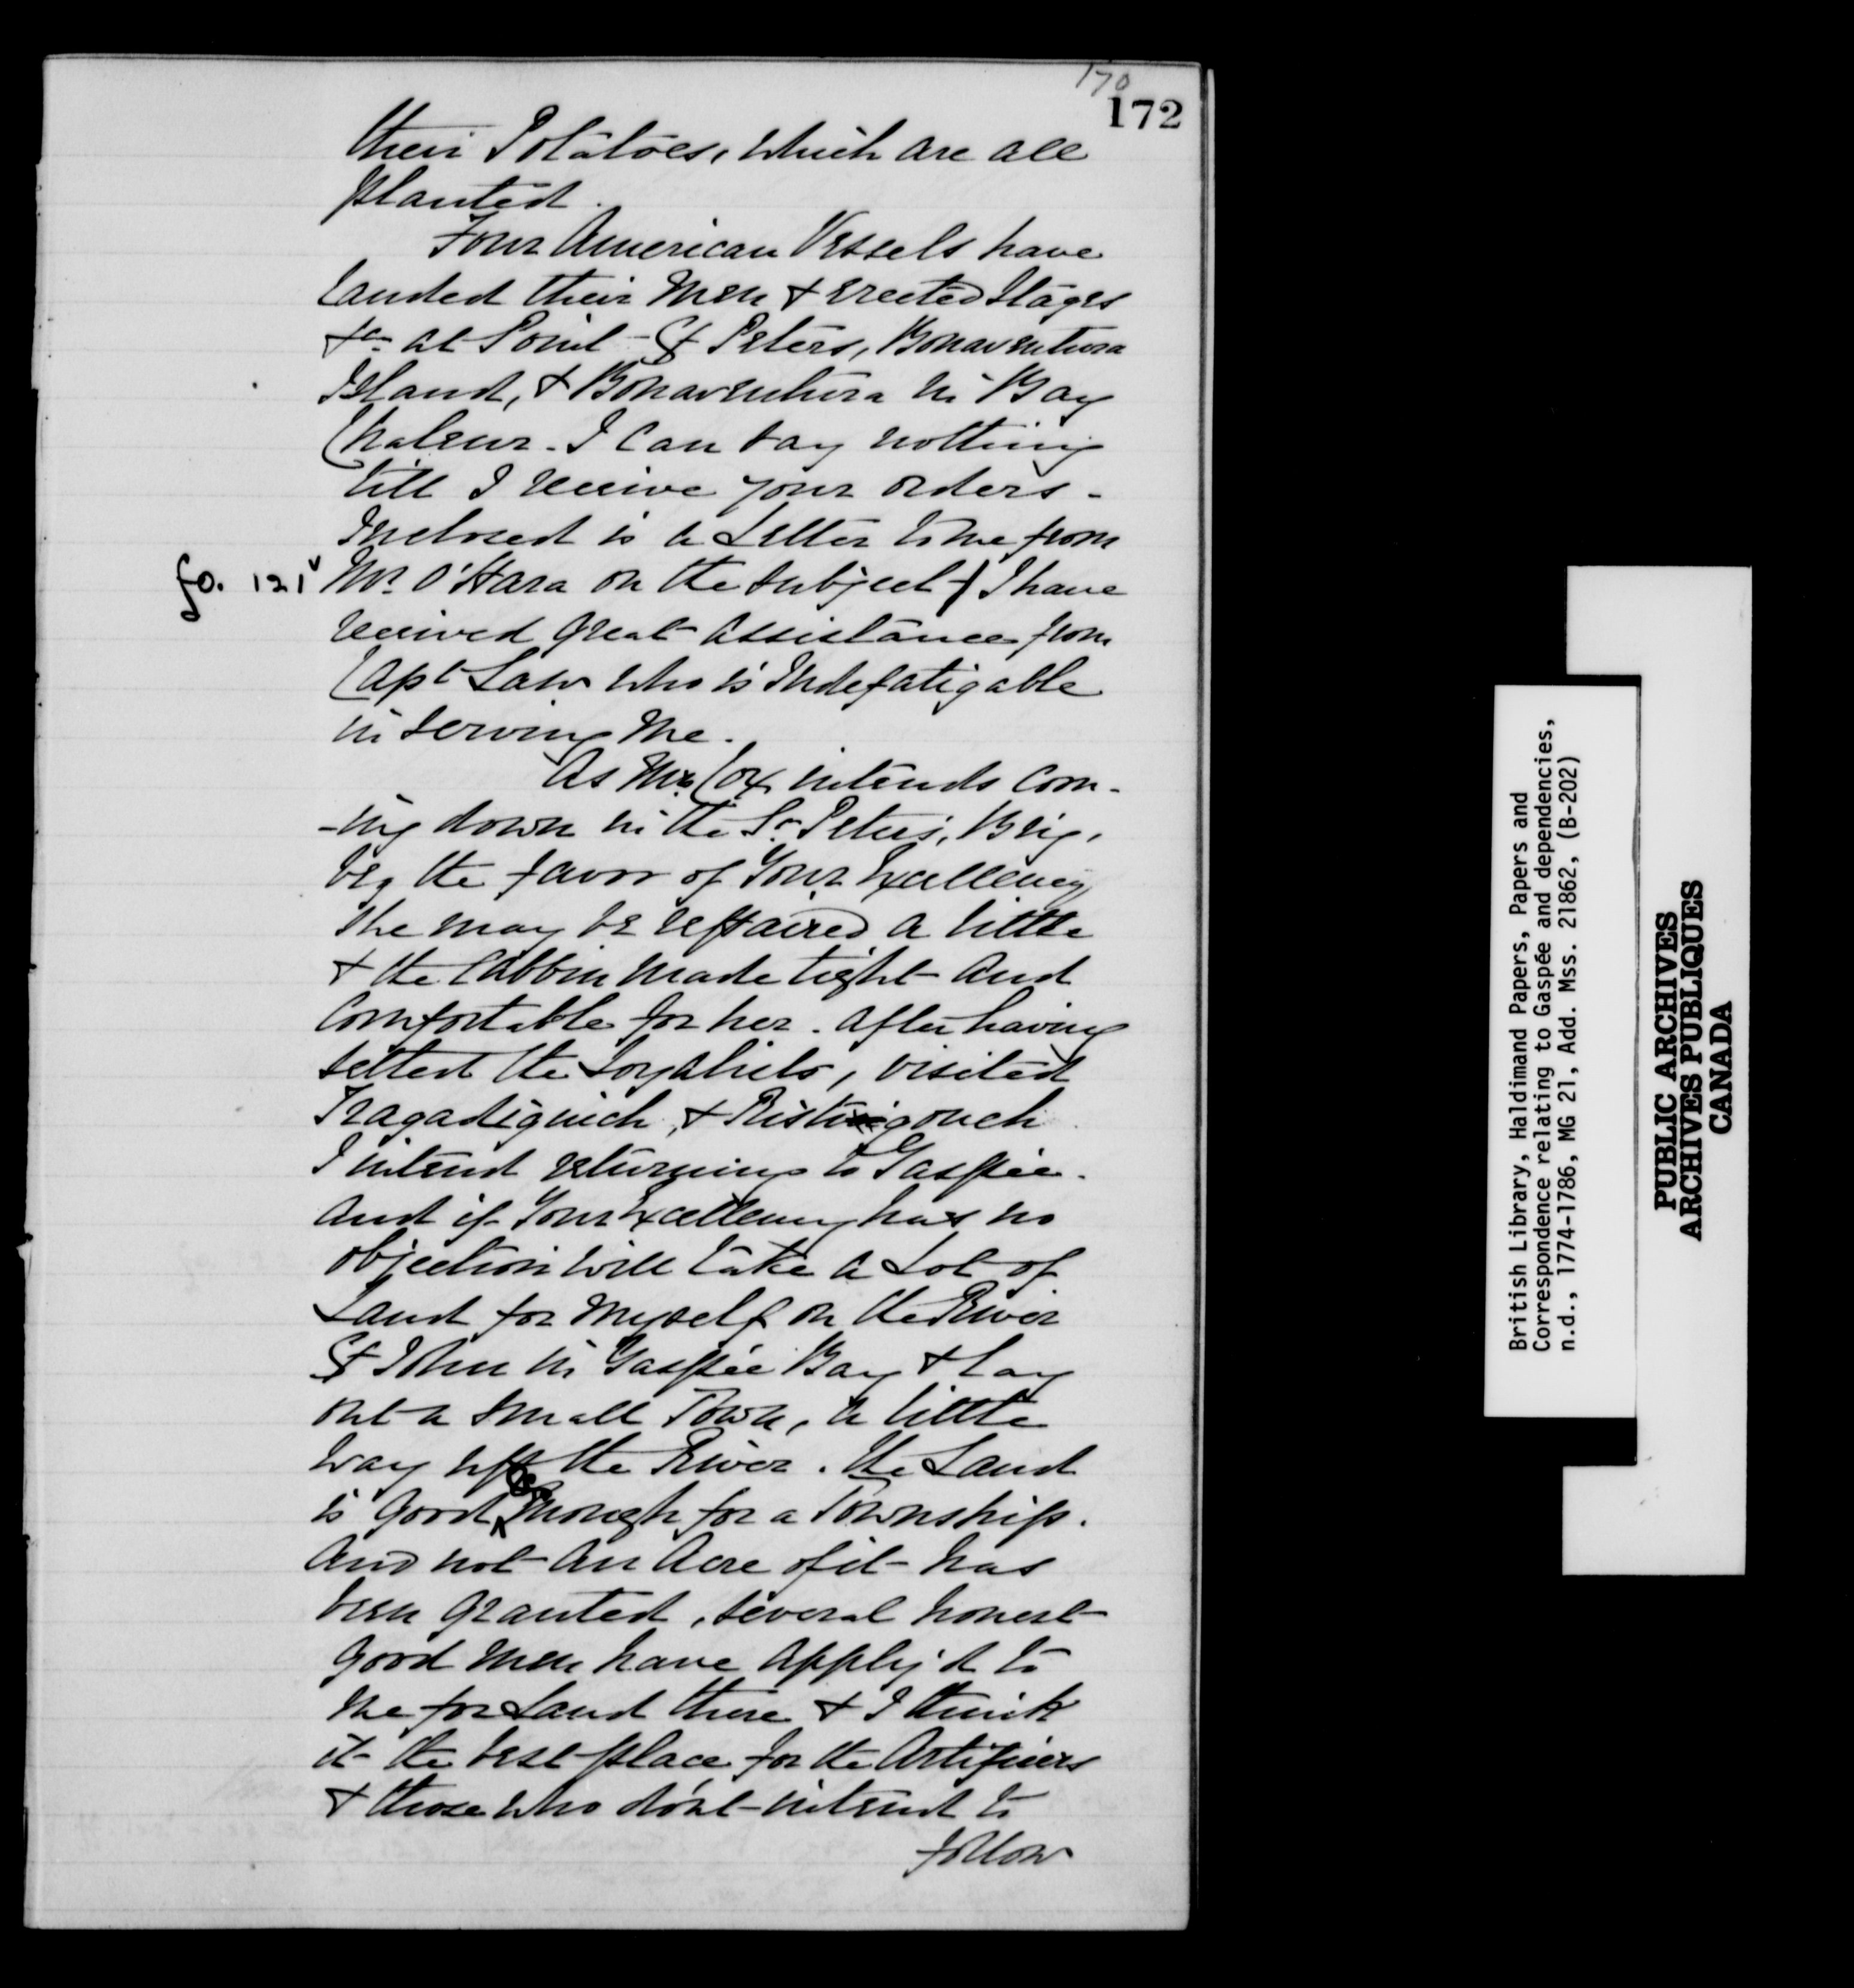 170
172
their Potatoes, which are all
planted.
Four American Vessels have
landed their Men & erected Stages
&ca at Point - St Peters, Bonaventura
Island, & Bonaventura in Bay
Chaleur. I can say nothing
till I receive your orders -
Inclosed is a Letter to me from
fo. 121v Mr. O'Hara on the subject / I have
received great assistance from
Capt Law who is Indefatigable
in serving Me.
As Mrs. Cox intends com-
-ing down in the St. Peters, Brig,
beg the favor of Your Excellency
she may be repaired a little
& the Cabbin made tight and
Comfortable for her. After having
settled the Loyalists, visited
Tragadiguich, & Ristigouch
I intend returning to Gaspée.
And if Your Excellency has no
objection will take a Lot of
Land for Myself on the River
St John in Gaspée Bay & lay
out a small Town, a little
way up the River. The Land
is good Enough for a Township.
And not an Acre of it has
been granted, several honest
good men have apply'd to
me for Land there & I think
it the best place for the Artificers
& those who dont intend to
follow
British Library, Haldimand Papers, Papers and
Correspondence relating to Gaspée and dependencies,
n.d., 1774-1786, MG 21, Add. Mss. 21862, (B-202)
PUBLIC ARCHIVES
ARCHIVES PUBLIQUES
CANADA